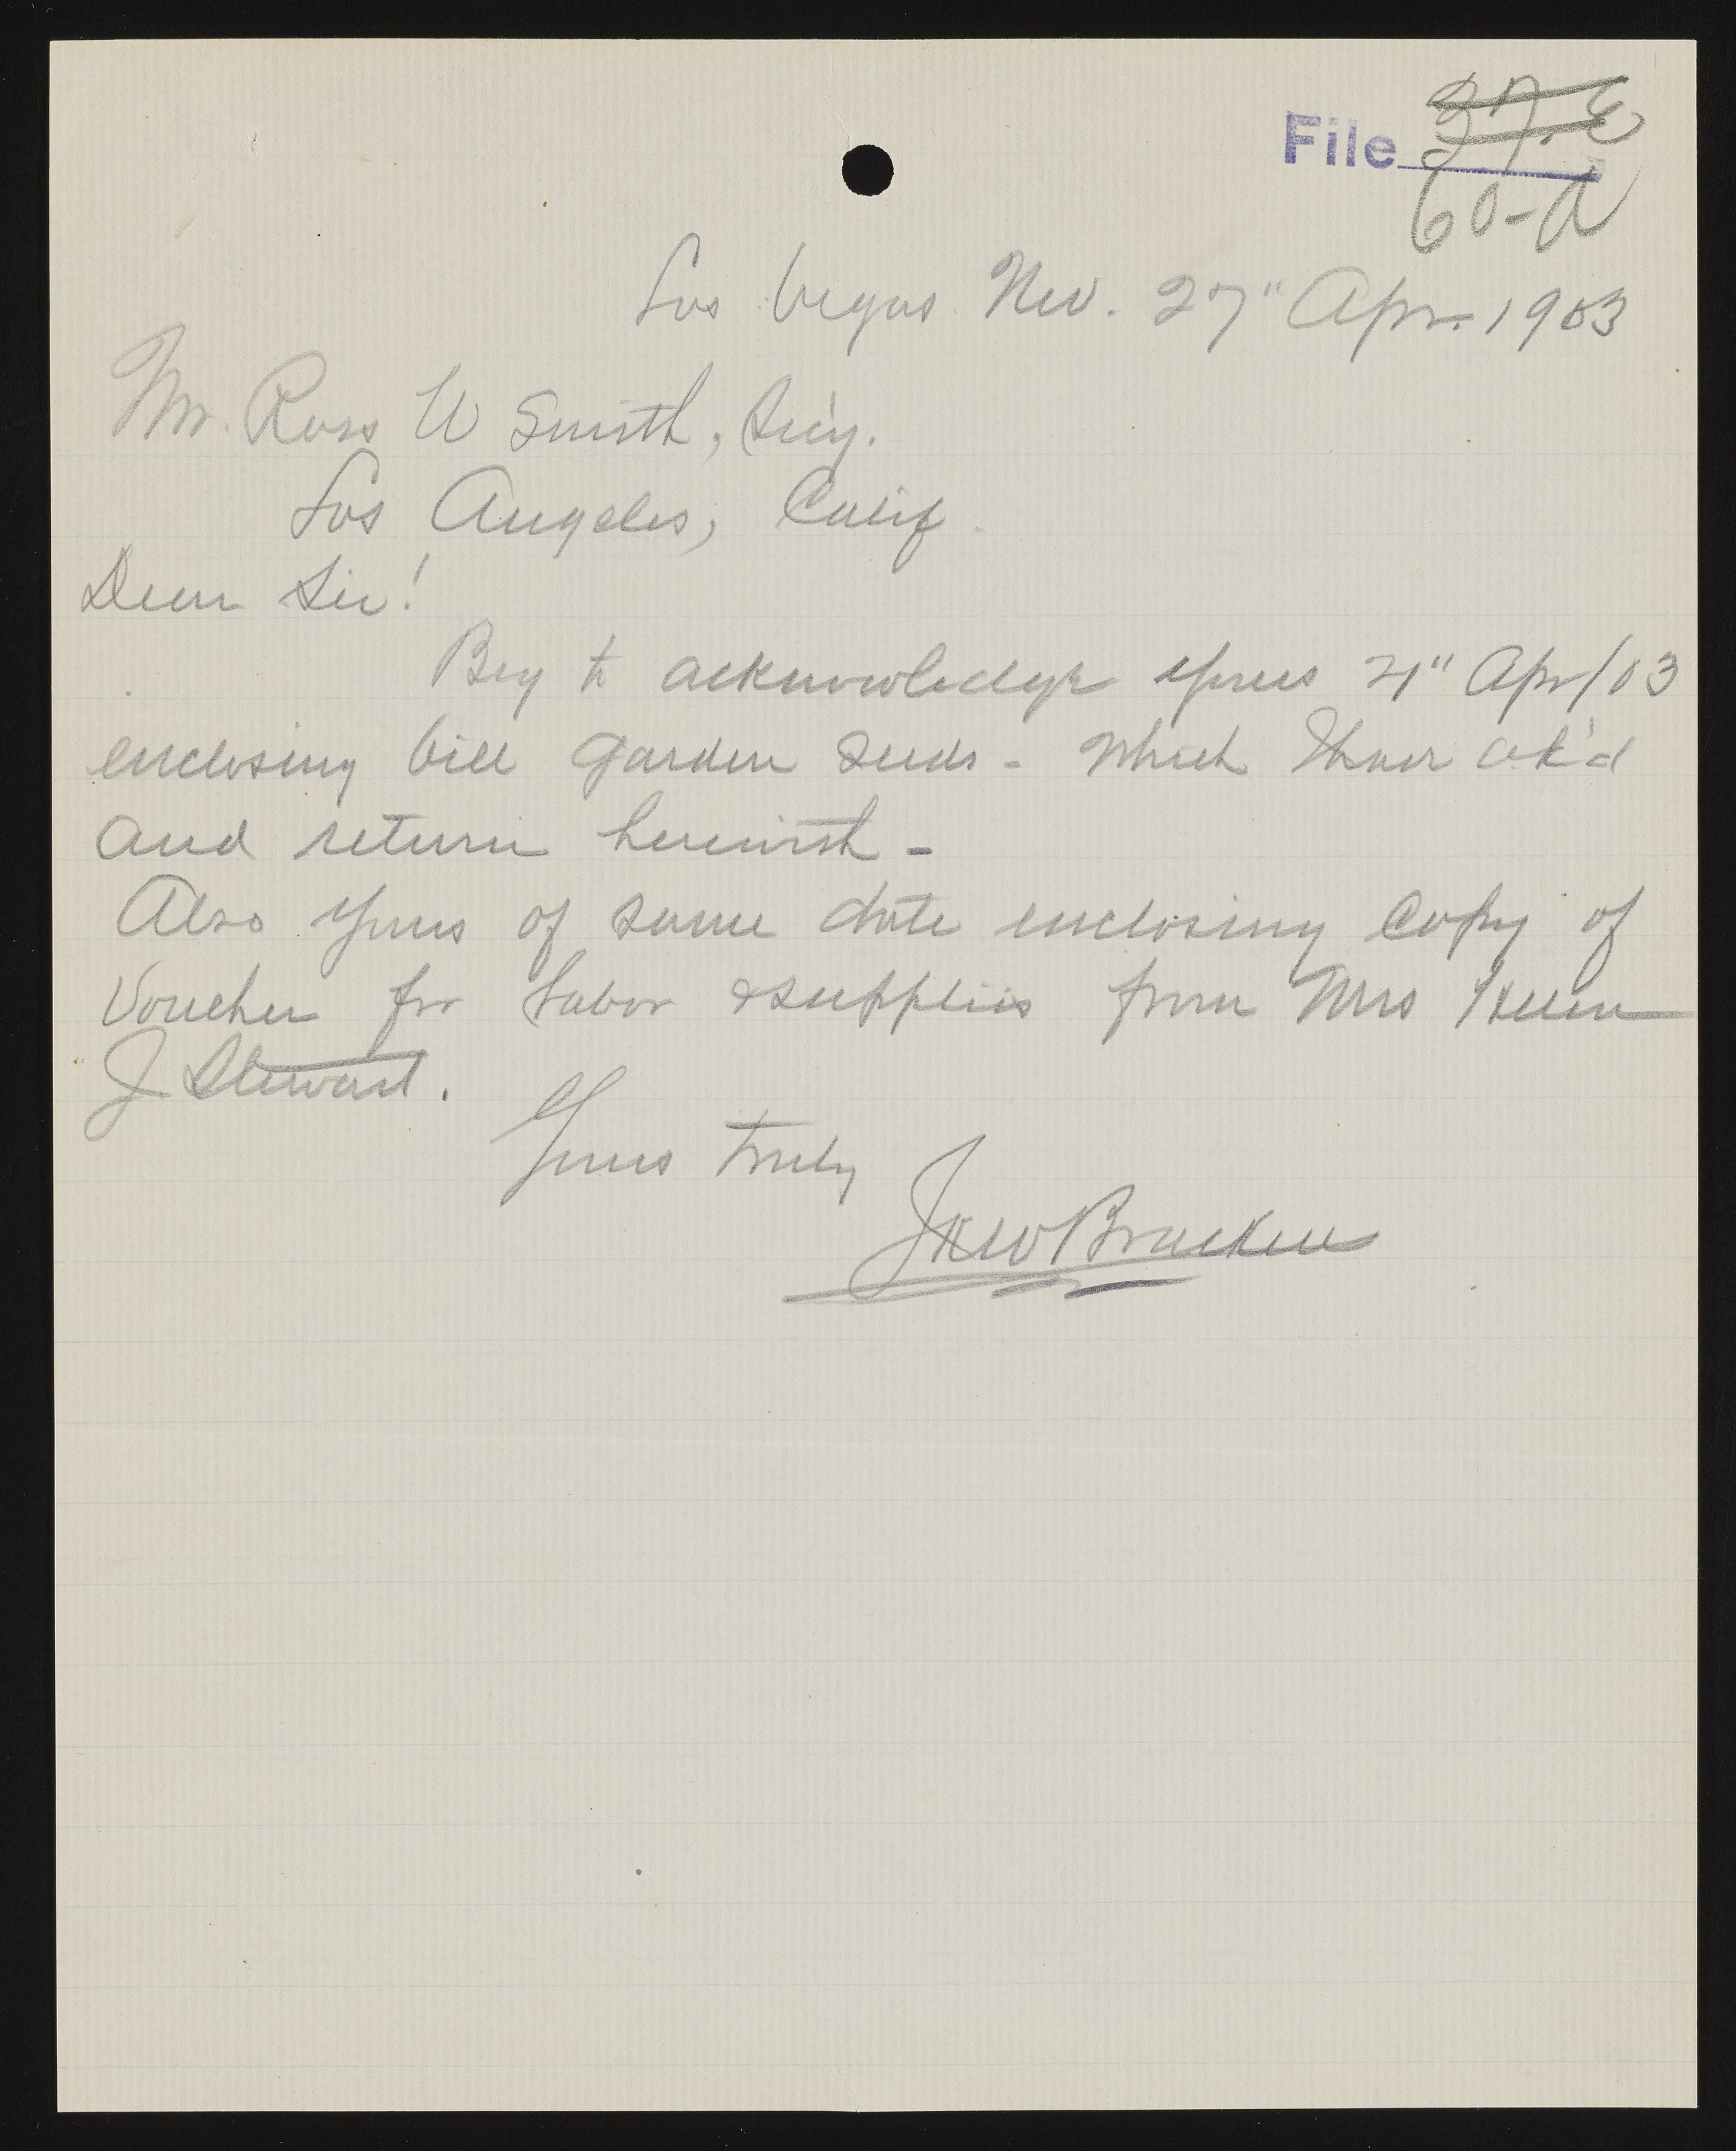 File 37.E
60-A
Las Vegas Nev. 27" Apr. 1903
Mr. Ross W Smith, Sec'y.
Los Angeles, Calif.
Dear Sir!
Beg to acknowledge yours 21" Apr/03
enclosing bill garden seeds - which I have ok'd
and return herewith -
Also yours of same date enclosing copy of
Voucher for labor & supplies from Mrs Helen
J Stewart.
Yours truly
Bracken